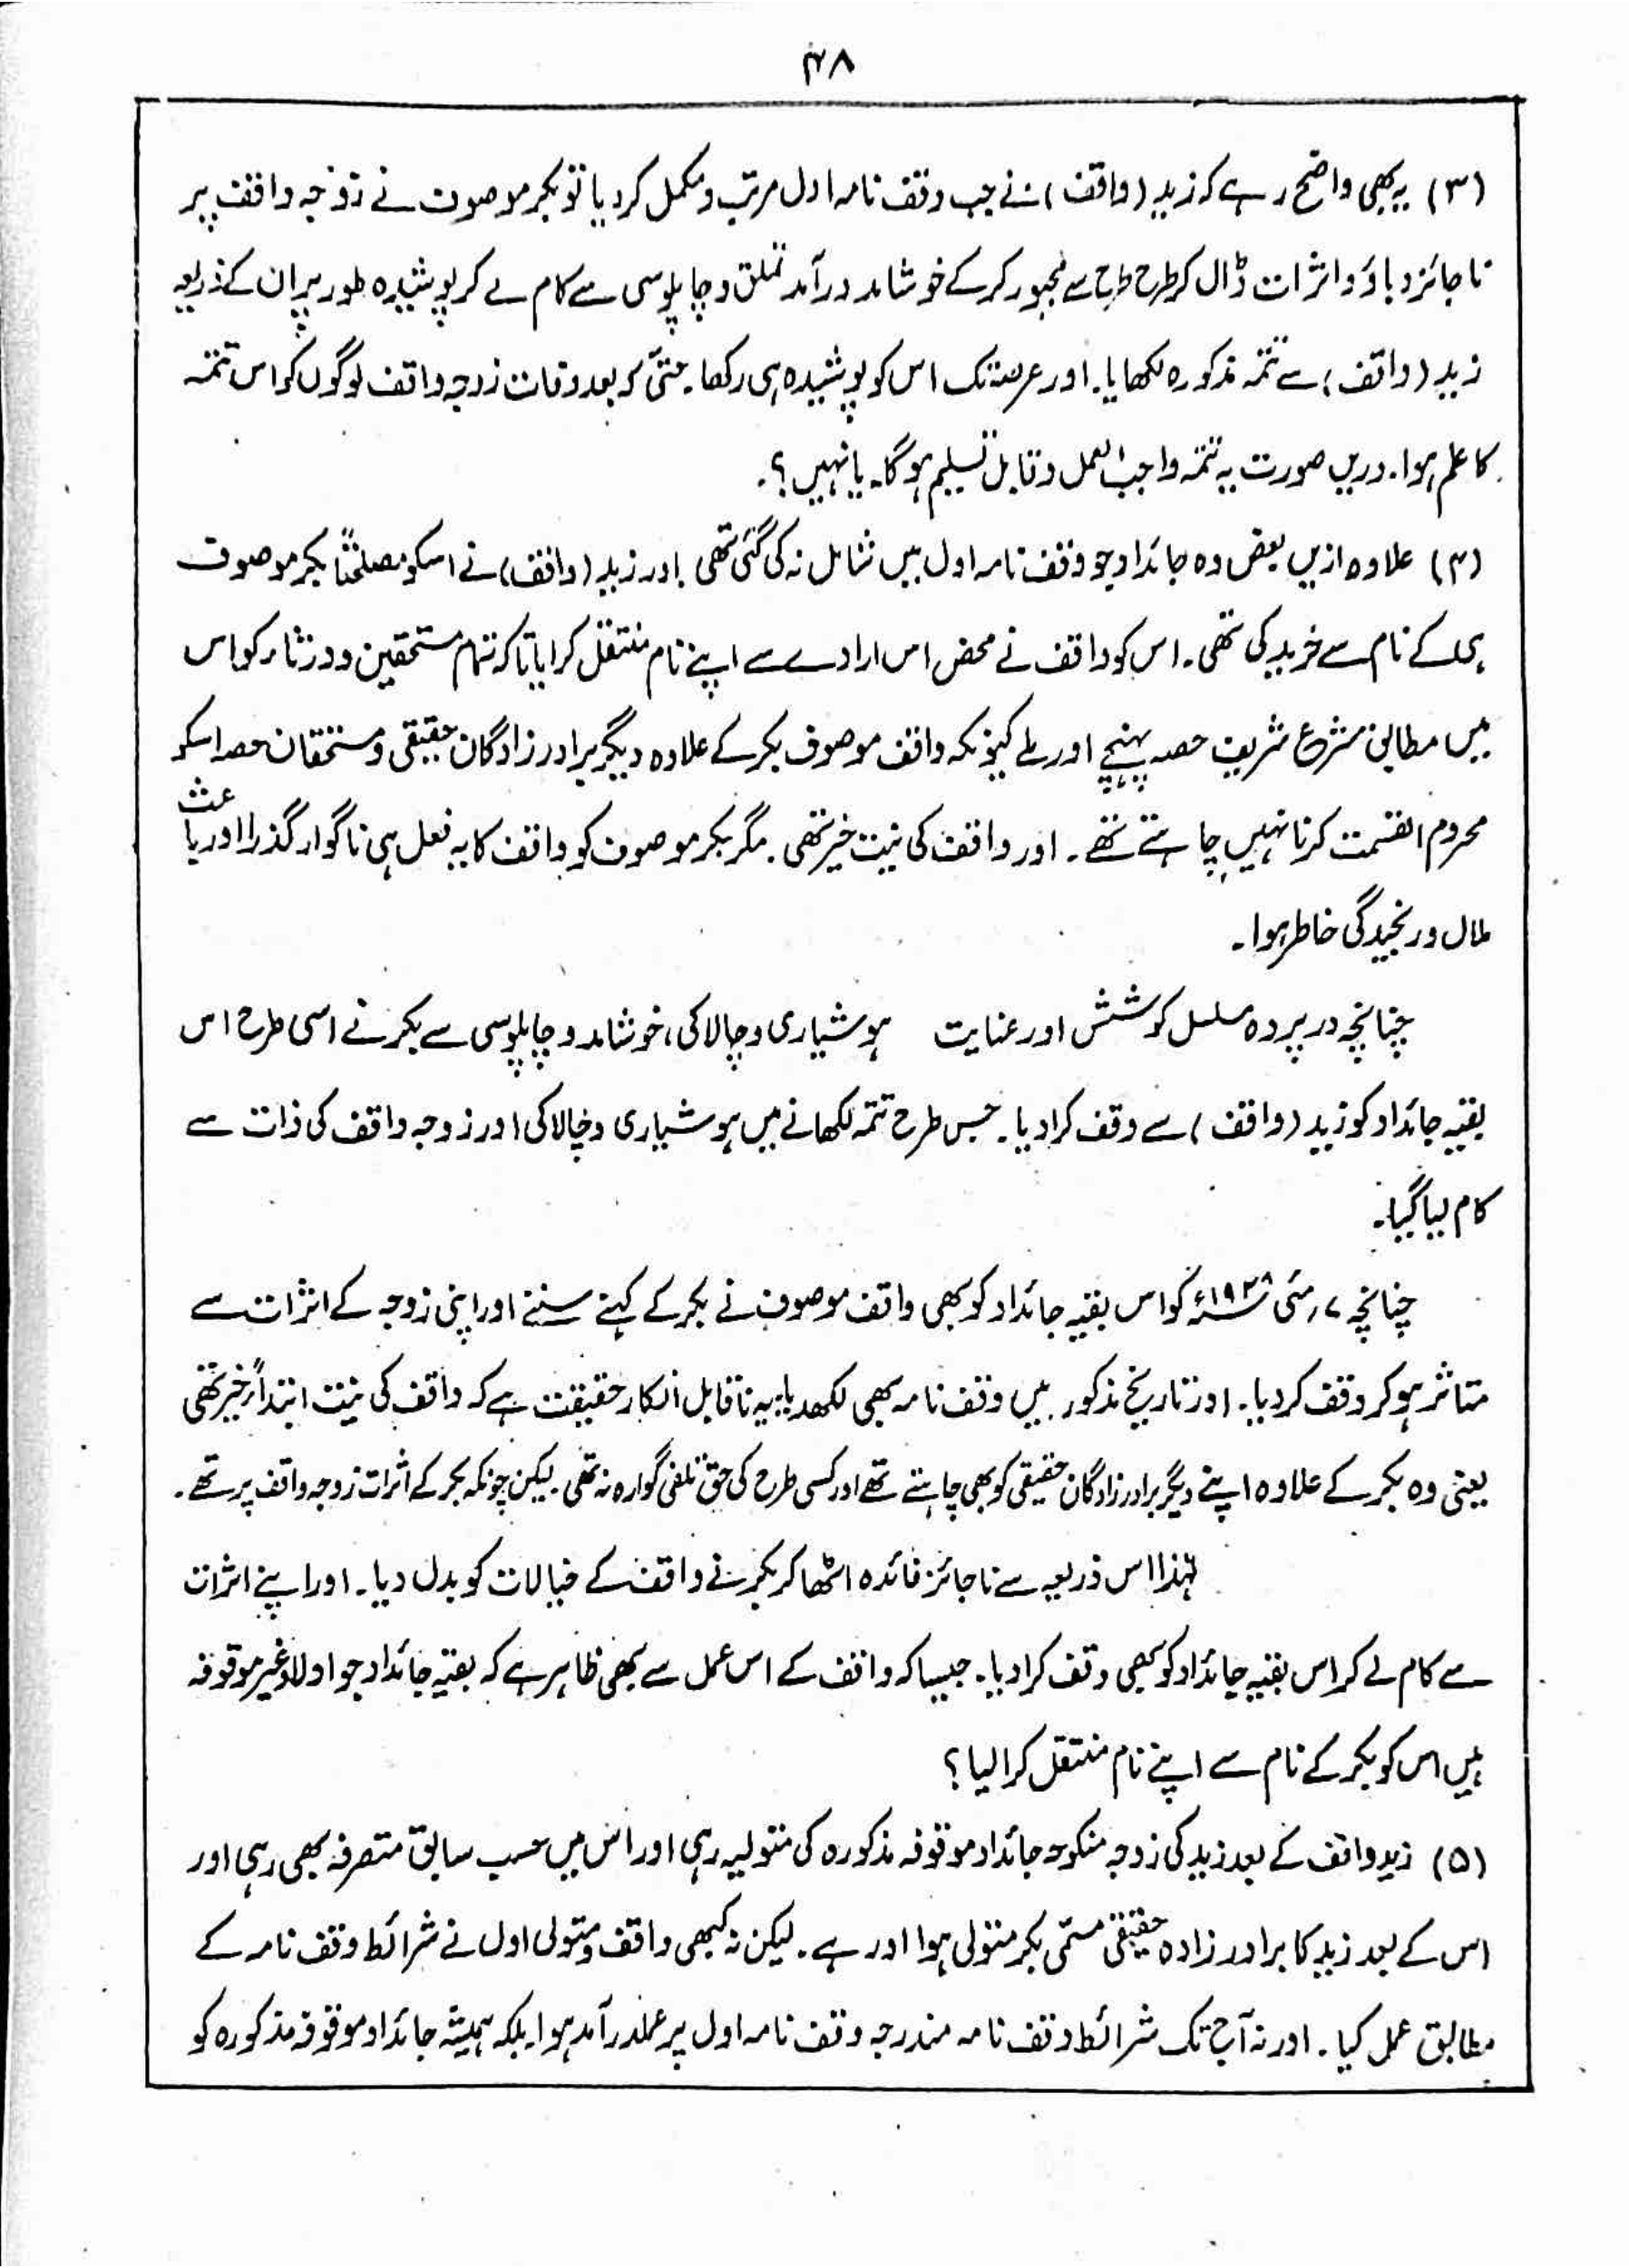 ۴۸
(۳) یہ بھی واضح رہے کہ زید (واقف) نے جب وقف نامہ اول مرتب و مکمل کر دیا تو بکر موصوف نے زوجہ واقف پر
ناجائز دباؤ و اثرات ڈال کر طرح طرح سے مجبور کرکے خوشامد درآمد تملق و چاپلوسی سے کام لے کر پوشیدہ طور پر ان کے ذریعہ
زید (واقف) سے تتمہ مذکورہ لکھایا۔ اور عرصہ تک اس کو پوشیدہ ہی رکھا۔ حتیٰ کہ بعد وفات زوجہ واقف لوگوں کو اس تتمہ
کا علم ہوا۔ دریں صورت یہ تتمہ واجب العمل و قابل تسلیم ہوگا۔ یا نہیں؟۔
(۴) علاوہ ازیں بعض وہ جائداد جو وقف نامہ اول میں شامل نہ کی گئی تھی اور زید (واقف) نے اسکو مصلحتاً بکر موصوف
ہی کے نام سے خرید کی تھی۔ اس کو واقف نے محض اس ارادے سے اپنے نام منتقل کرایا تاکہ تمام مستحقین و ورثاء کو اس
میں مطابق شرع شریف حصہ پہنچے اور ملے کیونکہ واقف موصوف بکر کے علاوہ دیگر برادر زادگان حقیقی و مستحقان حصہ اسکو
محروم القسمت کرنا نہیں چاہتے تھے۔ اور واقف کی نیت خیر تھی۔ مگر بکر موصوف کو واقف کا یہ فعل ہی ناگوار گذرا اور باعث
ملال و رنجیدگی خاطر ہوا۔
چنانچہ در پردہ مسلسل کوشش اور عنایت ہوشیاری و چالاکی، خوشامد و چاپلوسی سے بکر نے اسی طرح اس
بقیہ جائداد کو زید (واقف) سے وقف کرا دیا۔ جس طرح تتمہ لکھانے میں ہوشیاری و چالاکی اور زوجہ واقف کی ذات سے
کام لیا گیا۔
چنانچہ ۷؍ مئی ۱۹۲۸ء کو اس بقیہ جائداد کو بھی واقف موصوف نے بکر کے کہنے سننے اور اپنی زوجہ کے اثرات سے
متاثر ہو کر وقف کر دیا۔ اور تاریخ مذکور میں وقف نامہ بھی لکھدیا یہ ناقابل انکار حقیقت ہے کہ واقف کی نیت ابتداًء خیر تھی
یعنی وہ بکر کے علاوہ اپنے دیگر برادر زادگان حقیقی کو بھی چاہتے تھے اور کسی طرح کی حق تلفی گوارہ نہ تھی۔ لیکن چونکہ بکر کے اثرات زوجہ واقف پر تھے۔
لہٰذا اس ذریعہ سے ناجائز فائدہ اٹھا کر بکر نے واقف کے خیالات کو بدل دیا۔ اور اپنے اثرات
سے کام لے کر اس بقیہ جائداد کو بھی وقف کرا دیا۔ جیسا کہ واقف کے اس عمل سے بھی ظاہر ہے کہ بقیہ جائداد جو اولاً غیر موقوفہ
ہیں اس کو بکر کے نام سے اپنے نام منتقل کرا لیا؟
(۵) زید واقف کے بعد زید کی زوجہ منکوحہ جائداد موقوفہ مذکورہ کی متولیہ رہی اور اس میں حسب سابق متصرفہ بھی رہی اور
اس کے بعد زید کا برادر زادہ حقیقی مسمّی بکر متولی ہوا اور ہے۔ لیکن نہ کبھی واقف و متولی اول نے شرائط وقف نامہ کے
مطابق عمل کیا۔ اور نہ آج تک شرائط وقف نامہ مندرجہ وقف نامہ اول پر عملدرآمد ہوا۔ بلکہ ہمیشہ جائداد موقوفہ مذکورہ کو